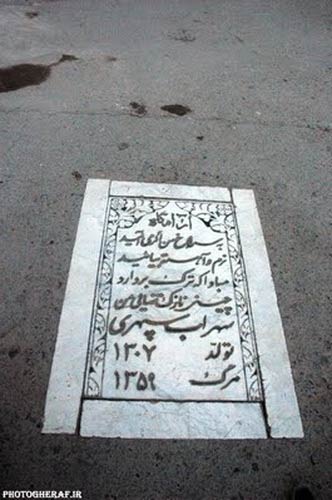 آرامگاه
به سراغ من اگر می‌آئید
نرم و آهسته بیائید
مبادا که ترک بردارد
چینی نازک تنهایی من
سهراب سپهری
تولد ۱۳۰۷
مرگ ۱۳۵۹
PHOTOGHERAF.IR